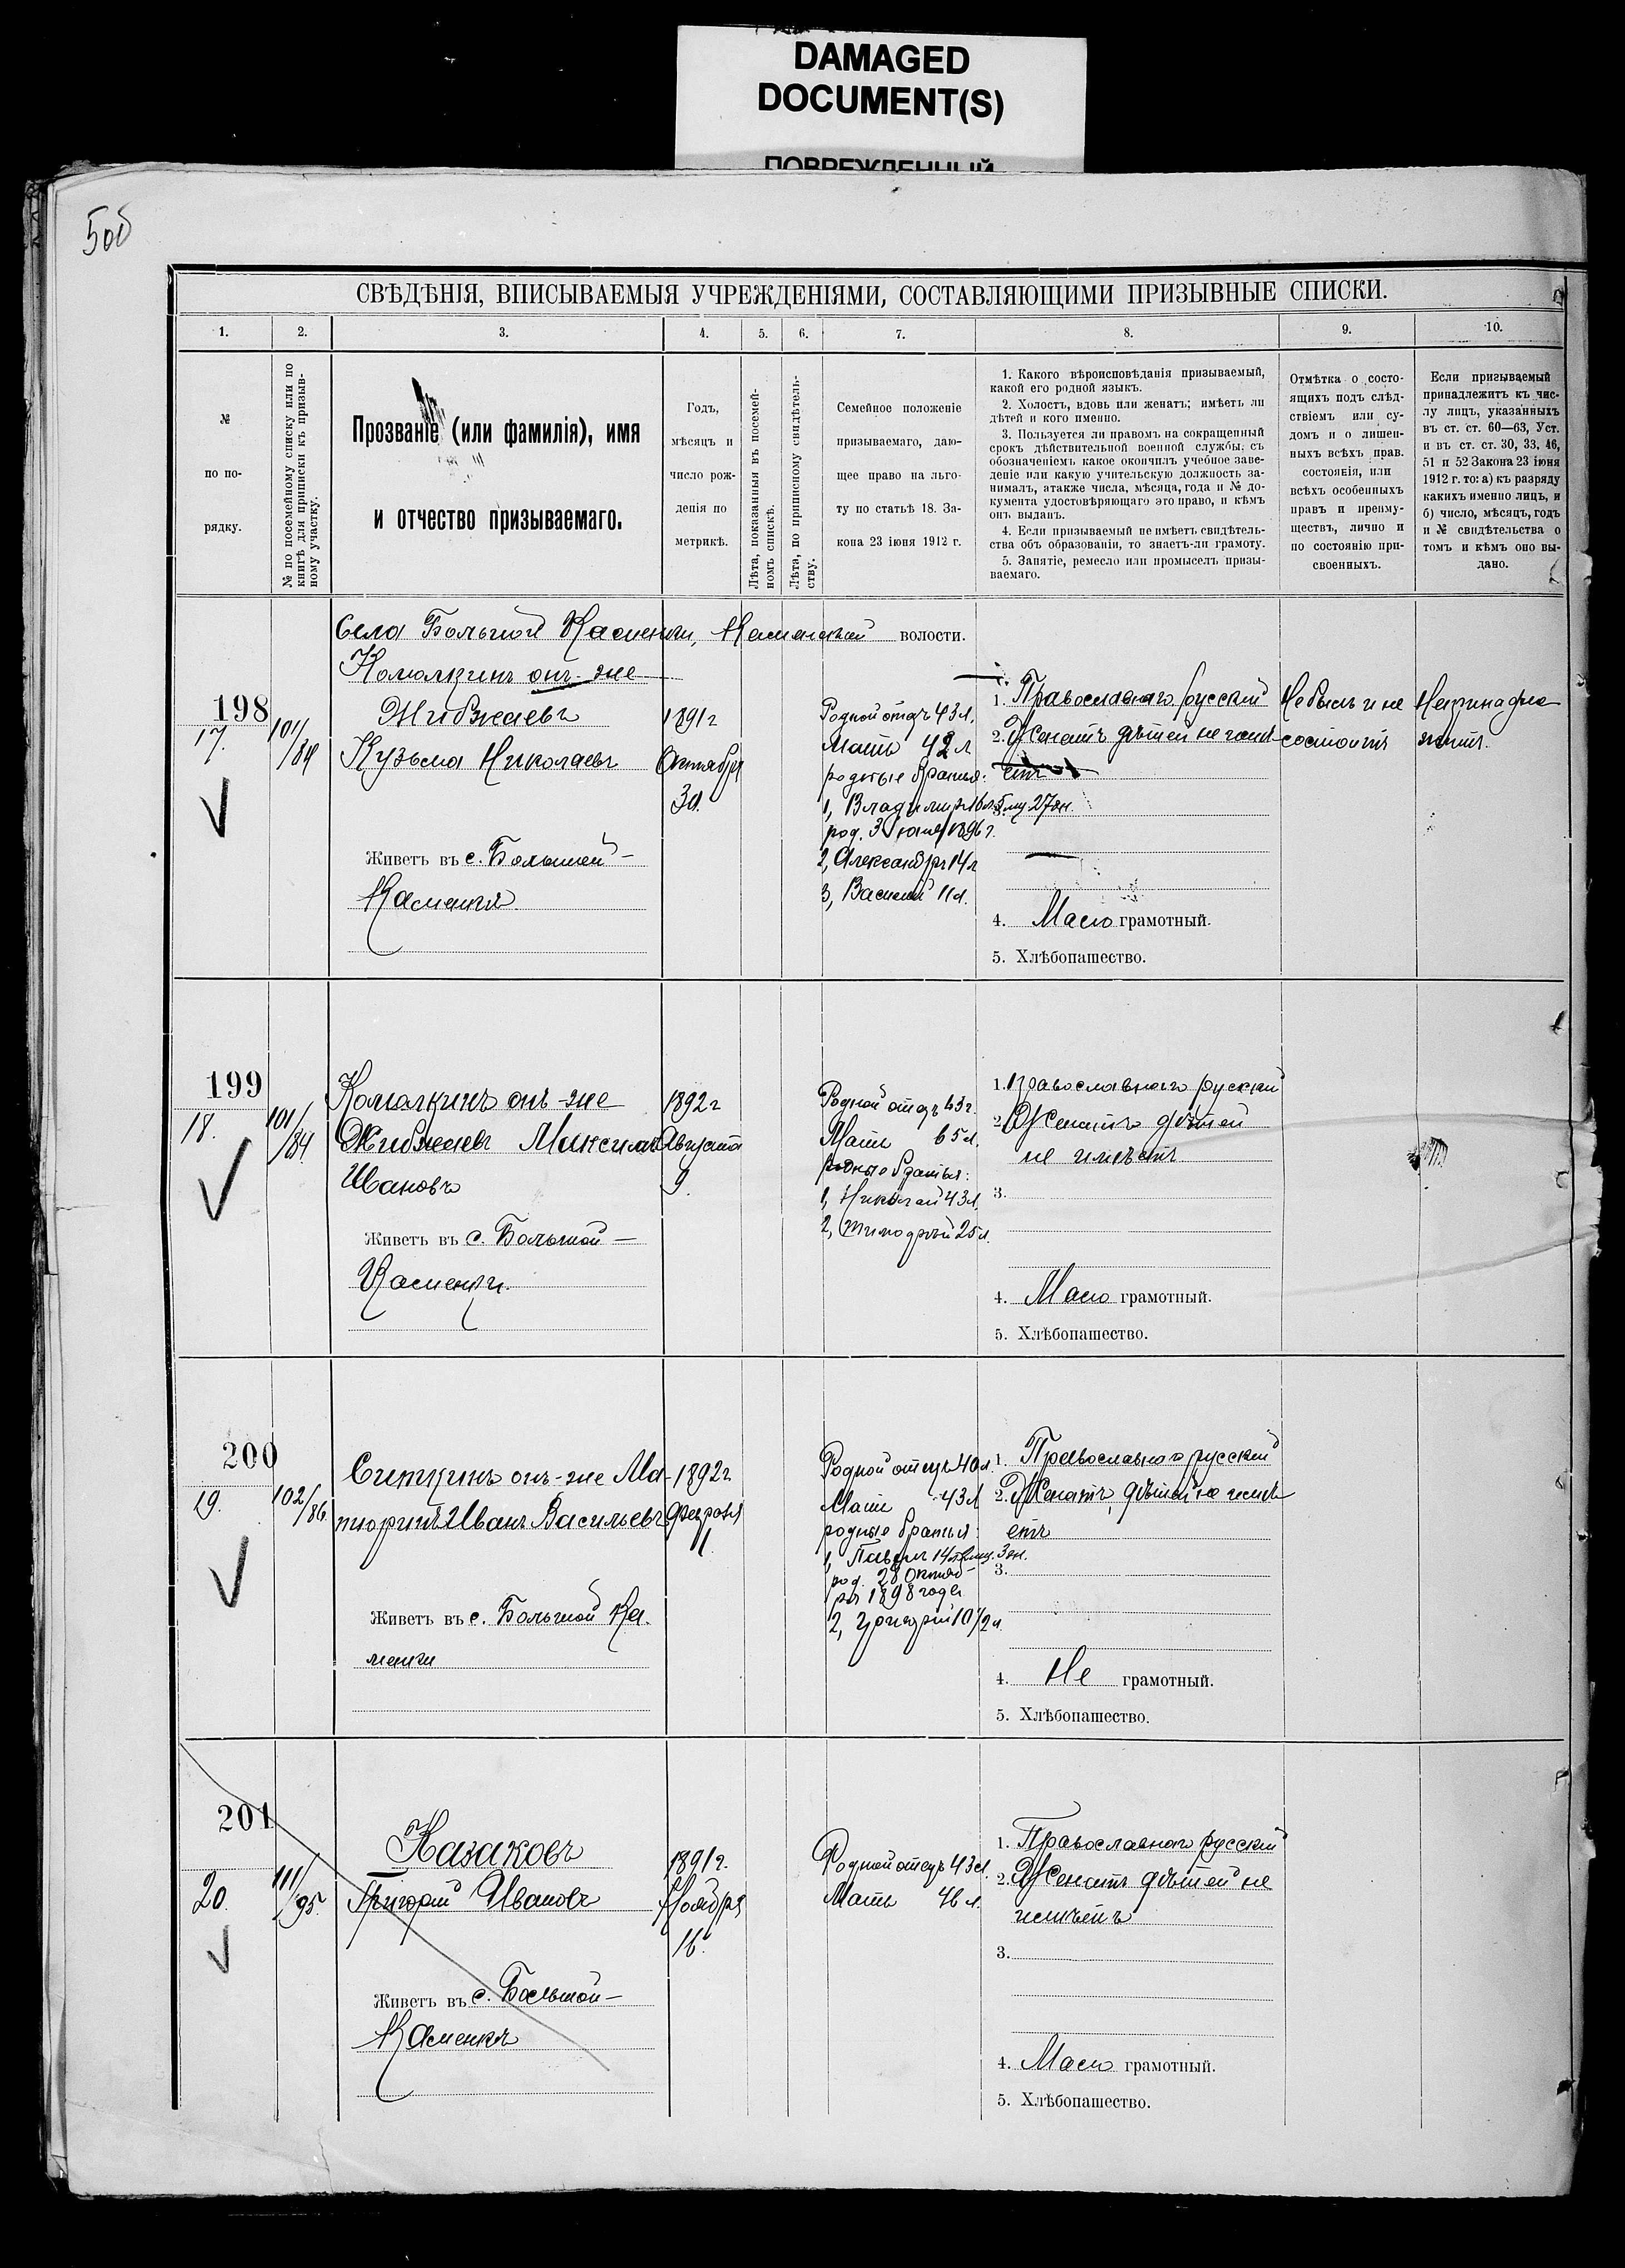 DAMAGED
DOCUMENT(S)
ПОВРЕЖДЕННЫЙ
50об
СВѢДѢНІЯ, ВПИСЫВАЕМЫЯ УЧРЕЖДЕНІЯМИ, СОСТАВЛЯЮЩИМИ ПРИЗЫВНЫЕ СПИСКИ.
1. 2. 3. 4. 5. 6. 7. 8. 9. 10.
№
по по-
рядку.
№ по посемейному списку или по
книгѣ для приписки къ призыв-
ному участку.
Прозваніе (или фамилія), имя
и отчество призываемаго.
Годъ,
мѣсяцъ и
число рож-
денія по
метрикѣ.
Лѣта, показанныя въ посемей-
номъ спискѣ.
Лѣта, по приписному свидѣтель-
ству.
Семейное положеніе
призываемаго, даю-
щее право на льго-
ту по статьѣ 18. За-
кона 23 іюня 1912 г.
1. Какого вѣроисповѣданія призываемый,
какой его родной языкъ.
2. Холостъ, вдовъ или женатъ; имѣетъ ли
дѣтей и кого именно.
3. Пользуется ли правомъ на сокращенный
срокъ дѣйствительной военной службы, съ
обозначеніемъ какое окончилъ учебное заве-
деніе или какую учительскую должность за-
нималъ, атакже числа, мѣсяца, года и № до-
кумента удостовѣряющаго это право, и кѣмъ
онъ выданъ.
4. Если призываемый не имѣетъ свидѣтель-
ства объ образованіи, то знаетъ-ли грамоту.
5. Занятіе, ремесло или промыселъ призы-
ваемаго.
Отмѣтка о состо-
ящихъ подъ слѣд-
ствіемъ или су-
домъ и о лишен-
ныхъ всѣхъ прав.
состоянія, или
всѣхъ особенныхъ
правъ и преиму-
ществъ, лично и
по состоянію при-
своенныхъ.
Если призываемый
принадлежитъ къ чис-
лу лицъ, указанныхъ
въ ст. ст. 60—63, Уст.
и въ ст. ст. 30, 33, 46,
51 и 52 Закона 23 іюня
1912 г. то: а) къ разряду
какихъ именно лицъ, и
б) число, мѣсяцъ, годъ
и № свидѣтельства о
томъ и кѣмъ оно вы-
дано.
Села Большой Каменки, Каменской волости.
198
17.
101/84
Комолкинъ онъ-же
Кузьма Николаевъ
Живетъ въ с. Большой-
Каменкѣ
1891 г
Октября
30.
Родной отецъ 43 л.
Мать 42 л.
родные братья:
1, Владимиръ 16 л. 5 мц. 27 дн.
род. 3 1896 г.
2, Александръ 14 л
3, Василій 11 л.
1. Православнаго русскій
2. Женатъ дѣтей не имѣ-
етъ
3.
4. Мало грамотный.
5. Хлѣбопашество.
Не былъ и не
состоитъ
Непринадле
житъ.
199
18.
101/84
Комолкинъ онъ-же
Максимъ
Ивановъ
Живетъ въ с. Большой-
Каменки.
1892 г
Августа
9.
Родной отецъ 63 г.
Мать 65 л.
родные братья:
1, Николай 43 л.
2, Тимофей 25 л.
1. Православнаго русскій
2. Женатъ дѣтей
не имѣетъ
3.
4. Мало грамотный.
5. Хлѣбопашество.
200
19.
102/86
Счеткинъ онъ-же Ма-
тюринъ Иванъ Васильевъ
Живетъ въ с. Большой Ка-
менки
1892 г
Февраля
11
Родной отецъ 40 л.
Мать 43 л
родные братья:
1, Павелъ 14 л. 2 мц. 3 дн.
род. 28 Октяб-
ря 1898 года
2, Григорій 10 1/2 л.
1. Православнаго русскій
2. Женатъ, дѣтей не имѣ-
етъ
3.
4. Не грамотный.
5. Хлѣбопашество.
201
20.
111/95.
Казаковъ
Григорій Ивановъ
Живетъ въ с. Большой-
Каменкѣ
1891 г.
Ноября
16.
Родной отецъ 43 л.
Мать 46 л.
1. Православнаго русскій
2. Женатъ дѣтей не
имѣетъ
3.
4. Мало грамотный.
5. Хлѣбопашество.